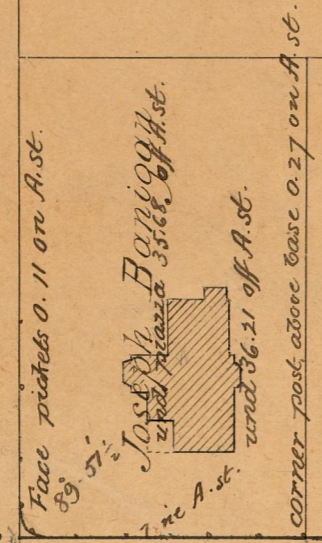 Face pickets 0.11 on A.st.
89°-51½'
Joseph Banigan
und piazza 35.68 off A.st.
und 36.21 off A.st.
corner post above base 0.27 on A.st.
line A.st.